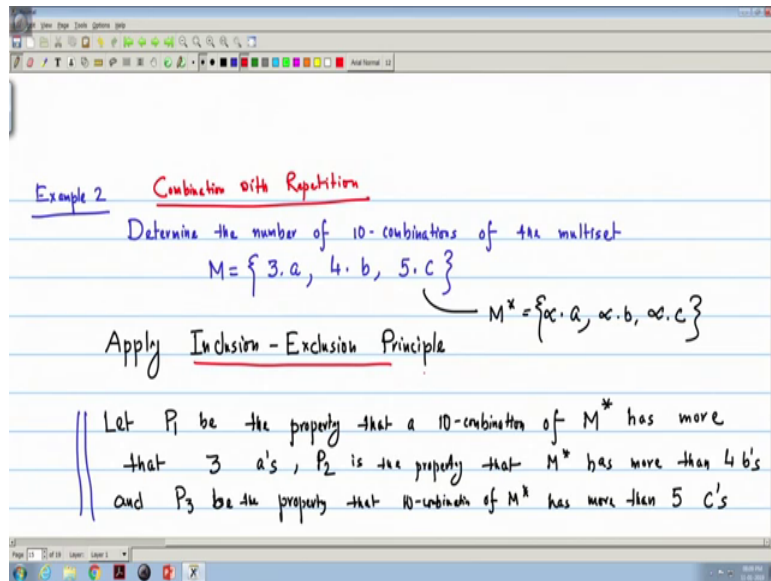 View Page Tools Options Help
Arial Normal 12
Example 2 Combination with Repetition
Determine the number of 10-combinations of the multiset
M = { 3.a, 4.b, 5.c }
M* = {∝.a, ∝.b, ∝.c}
Apply Inclusion - Exclusion Principle
Let P₁ be the property that a 10-combination of M* has more
that 3 a's, P₂ is the property that M* has more than 4 b's
and P₃ be the property that 10-combination of M* has more than 5 c's
Page 15 of 19 Layer: Layer 1